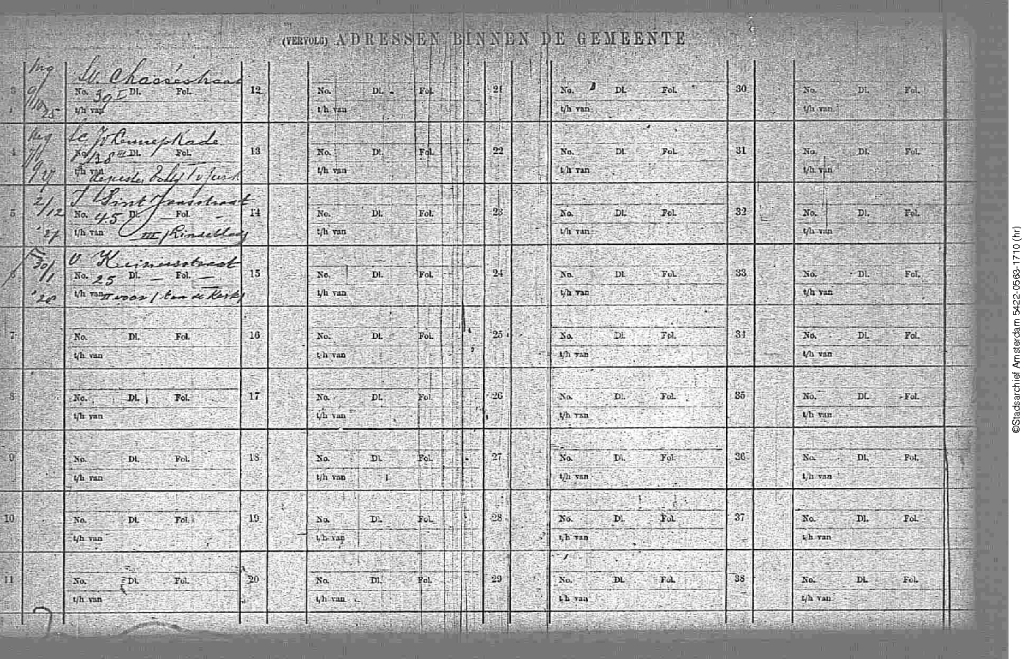 (VERVOLG) ADRESSEN BINNEN DE GEMEENTE
3 Chasséstraat
No. 39 I Dl. Fol.
t/h van
4 kade
138 III Dl. Fol.
t/h van
2/12 Sint Jansstraat
5 No. 45 Dl. Fol.
'27 t/h van III
30/1 Kuinersstraat
No. 25 Dl. Fol.
'28 t/h van II voor
7 No. Dl. Fol.
t/h van
8 No. Dl. Fol.
t/h van
9 No. Dl. Fol.
t/h van
10 No. Dl. Fol.
t/h van
11 No. Dl. Fol.
t/h van
12 No. Dl. Fol.
t/h van
13 No. Dl. Fol.
t/h van
14 No. Dl. Fol.
t/h van
15 No. Dl. Fol.
t/h van
16 No. Dl. Fol.
t/h van
17 No. Dl. Fol.
t/h van
18 No. Dl. Fol.
t/h van
19 No. Dl. Fol.
t/h van
20 No. Dl. Fol.
t/h van
21 No. Dl. Fol.
t/h van
22 No. Dl. Fol.
t/h van
23 No. Dl. Fol.
t/h van
24 No. Dl. Fol.
t/h van
25 No. Dl. Fol.
t/h van
26 No. Dl. Fol.
t/h van
27 No. Dl. Fol.
t/h van
28 No. Dl. Fol.
t/h van
29 No. Dl. Fol.
t/h van
30 No. Dl. Fol.
t/h van
31 No. Dl. Fol.
t/h van
32 No. Dl. Fol.
t/h van
33 No. Dl. Fol.
t/h van
34 No. Dl. Fol.
t/h van
35 No. Dl. Fol.
t/h van
36 No. Dl. Fol.
t/h van
37 No. Dl. Fol.
t/h van
38 No. Dl. Fol.
t/h van
©Stadsarchief Amsterdam 5422-0563-1710 (hr)